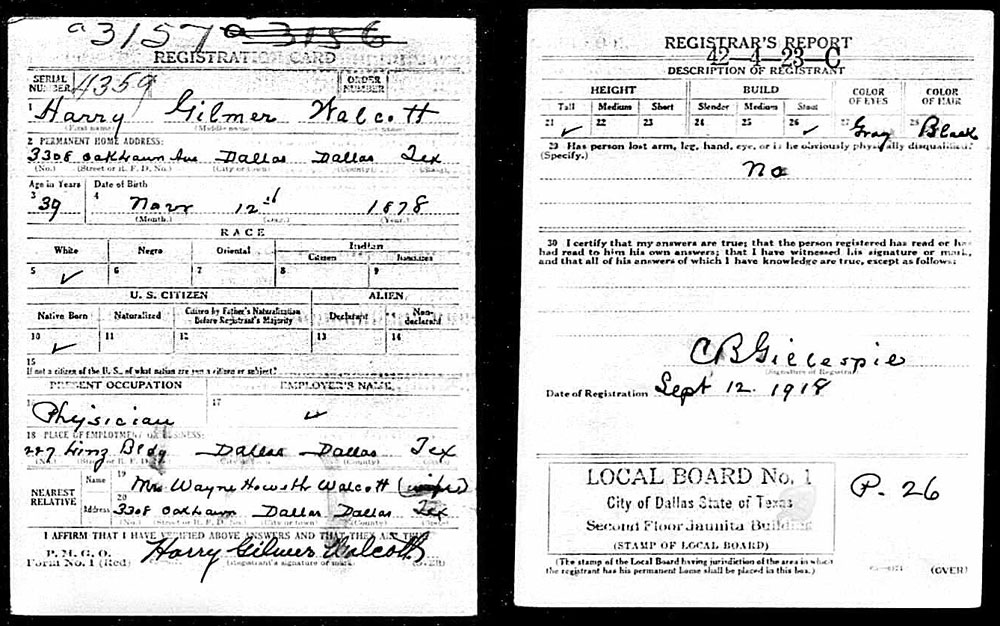 a3157 a 3156
REGISTRATION CARD
SERIAL NUMBER 4359 ORDER NUMBER
1 Harry Gilmer Walcott
(First name) (Middle name)
2 PERMANENT HOME ADDRESS:
3308 Oaklawn Ave Dallas Dallas Tex
(No.) (Street or R. F. D. No.) (City or town) (County) (State)
Age in Years Date of Birth
3 39 4 Novr 12th 1878
(Month.) (Day.) (Year.)
RACE
White Negro Oriental Indian
Citizen Noncitizen
5 ✓ 6 7 8 9
U. S. CITIZEN ALIEN
Native Born Naturalized Citizen by Father's Naturalization Before Registrant's Majority Declarant Non-declarant
10 ✓ 11 12 13 14
15
If not a citizen of the U. S., of what nation are you a citizen or subject?
PRESENT OCCUPATION EMPLOYER'S NAME
Physician 17 ✓
18 PLACE OF EMPLOYMENT OR BUSINESS:
227 Linz Bldg Dallas Dallas Tex
(No.) (Street or R. F. D. No.) (City or Town) (County) (State)
NEAREST RELATIVE Name 19 Mrs Wayne Howeth Walcott (wife)
Address 20 3308 Oaklawn Dallas Dallas Tex
(No.) (Street or R. F. D. No.) (City or town) (County) (State)
I AFFIRM THAT I HAVE VERIFIED ABOVE ANSWERS AND THAT THEY ARE TRUE
P. M. G. O.
Form No. 1 (Red) Harry Gilmer Walcott
(Registrant's signature or mark)
REGISTRAR'S REPORT
42-4-23-C
DESCRIPTION OF REGISTRANT
HEIGHT BUILD COLOR OF EYES COLOR OF HAIR
Tall Medium Short Slender Medium Stout
21 ✓ 22 23 24 25 26 ✓ 27 Gray 28 Black
29 Has person lost arm, leg, hand, eye, or is he obviously physically disqualified?
(Specify.)
No
30 I certify that my answers are true; that the person registered has read or has
had read to him his own answers; that I have witnessed his signature or mark,
and that all of his answers of which I have knowledge are true, except as follows:
C B Gillespie
(Signature of Registrar)
Date of Registration Sept 12 1918
LOCAL BOARD No. 1
City of Dallas State of Texas
Second Floor Jaunita Building
(STAMP OF LOCAL BOARD)
P. 26
(The stamp of the Local Board having jurisdiction of the area in which
the registrant has his permanent home shall be placed in this box.)
(OVER)